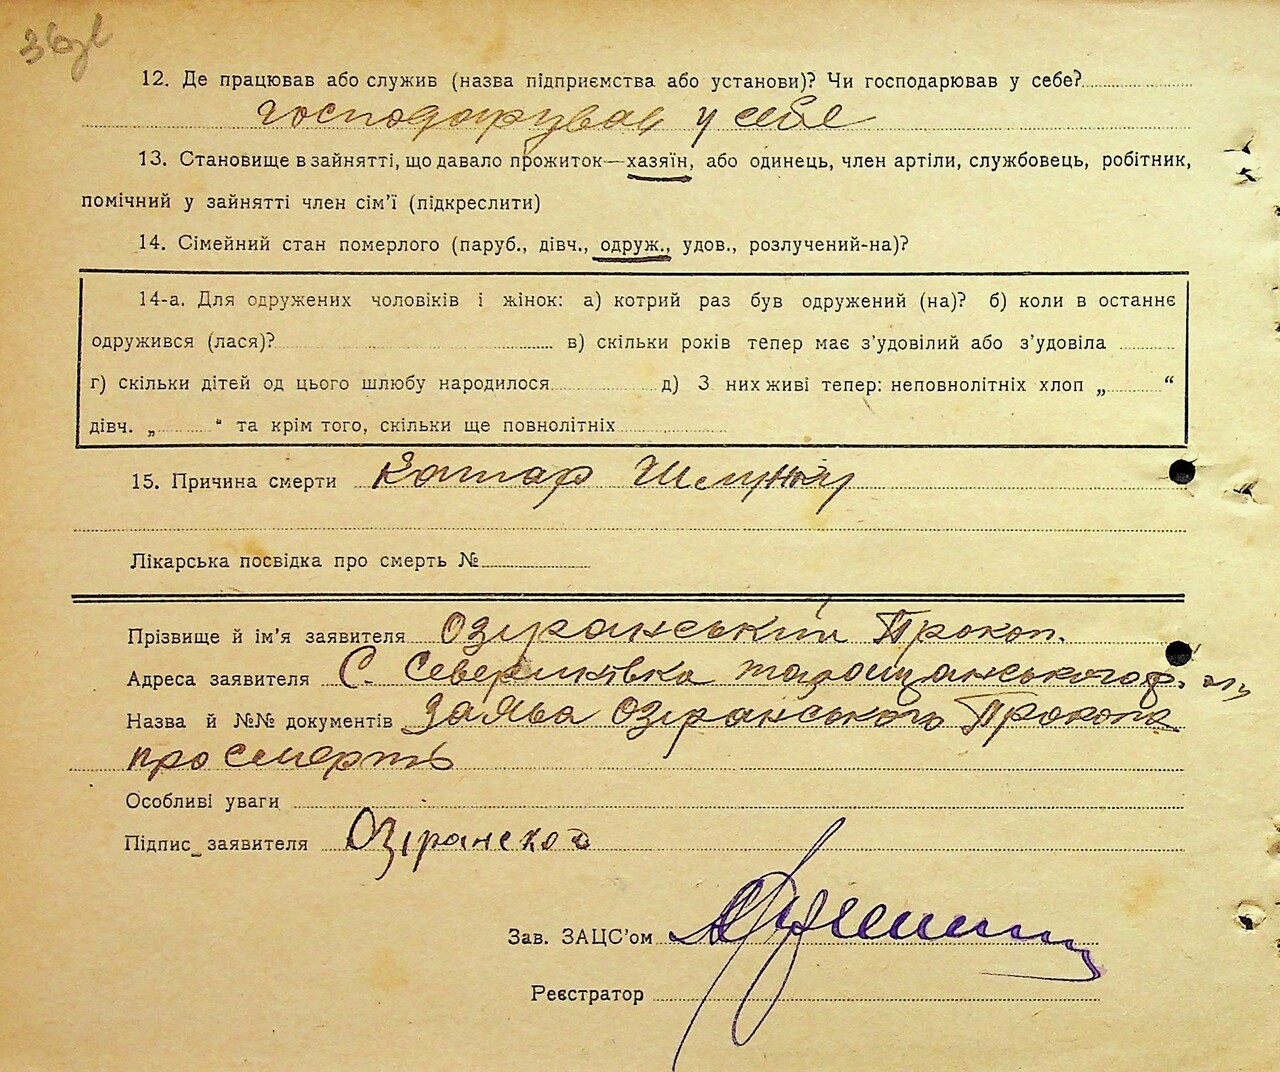 36зв
12. Де працював або служив (назва підприємства або установи)? Чи господарював у себе?
господарував у себе
13. Становище в зайнятті, що давало прожиток—хазяїн, або одинець, член артіли, службовець, робітник,
помічний у зайнятті член сім’ї (підкреслити)
14. Сімейний стан померлого (паруб., дівч., одруж., удов., розлучений-на)?
14-а. Для одружених чоловіків і жінок: а) котрий раз був одружений (на)? б) коли в останнє
одружився (лася)? в) скільки років тепер має з’удовілий або з’удовіла
г) скільки дітей од цього шлюбу народилося д) З них живі тепер: неповнолітніх хлоп „ “
дівч. „ “ та крім того, скільки ще повнолітніх
15. Причина смерти Катар Шлунку
Лікарська посвідка про смерть №
Прізвище й ім’я заявителя Озіранський Прокоп.
Адреса заявителя С. Северинівка таращанського р.
Назва й №№ документів Заява Озіранського Прокопа
про смерть
Особливі уваги
Підпис заявителя Озіранской
Зав. ЗАЦС’ом
Реєстратор